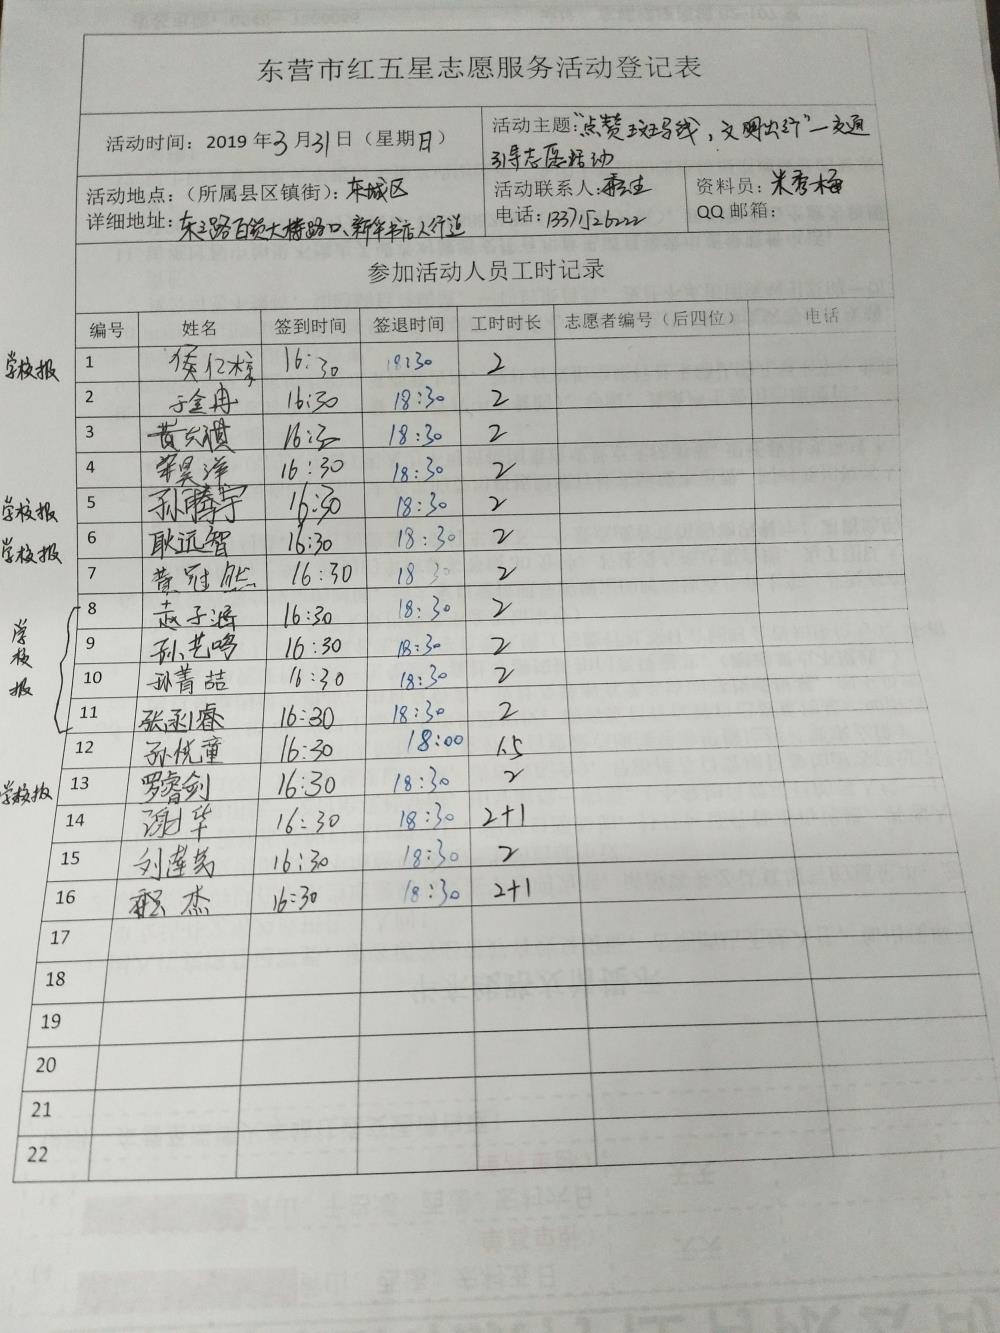 东营市红五星志愿服务活动登记表
活动时间：2019年3月31日（星期日）
活动主题：“点赞斑马线，文明出行”—交通
引导志愿活动
活动地点：（所属县区镇街）：东城区
详细地址：东三路百货大楼路口、新华书店人行道
活动联系人：
电话：13371526222
资料员：米秀梅
QQ邮箱：
参加活动人员工时记录
编号 姓名 签到时间 签退时间 工时时长 志愿者编号（后四位） 电话
学校报 1 侯亿 16:30 18:30 2
2 于金冉 16:30 18:30 2
3 黄 祺 16:30 18:30 2
4 荣昊洋 16:30 18:30 2
学校报 5 孙腾宇 16:30 18:30 2
学校报 6 耿远智 16:30 18:30 2
7 黄冠然 16:30 18:30 2
学校报
8 赵子涵 16:30 18:30 2
9 孙艺 16:30 18:30 2
10 孙菁喆 16:30 18:30 2
11 张函睿 16:30 18:30 2
12 孙悦童 16:30 18:00 1.5
学校报 13 罗睿剑 16:30 18:30 2
14 谢华 16:30 18:30 2+1
15 刘莲 16:30 18:30 2
16 杰 16:30 18:30 2+1
17
18
19
20
21
22